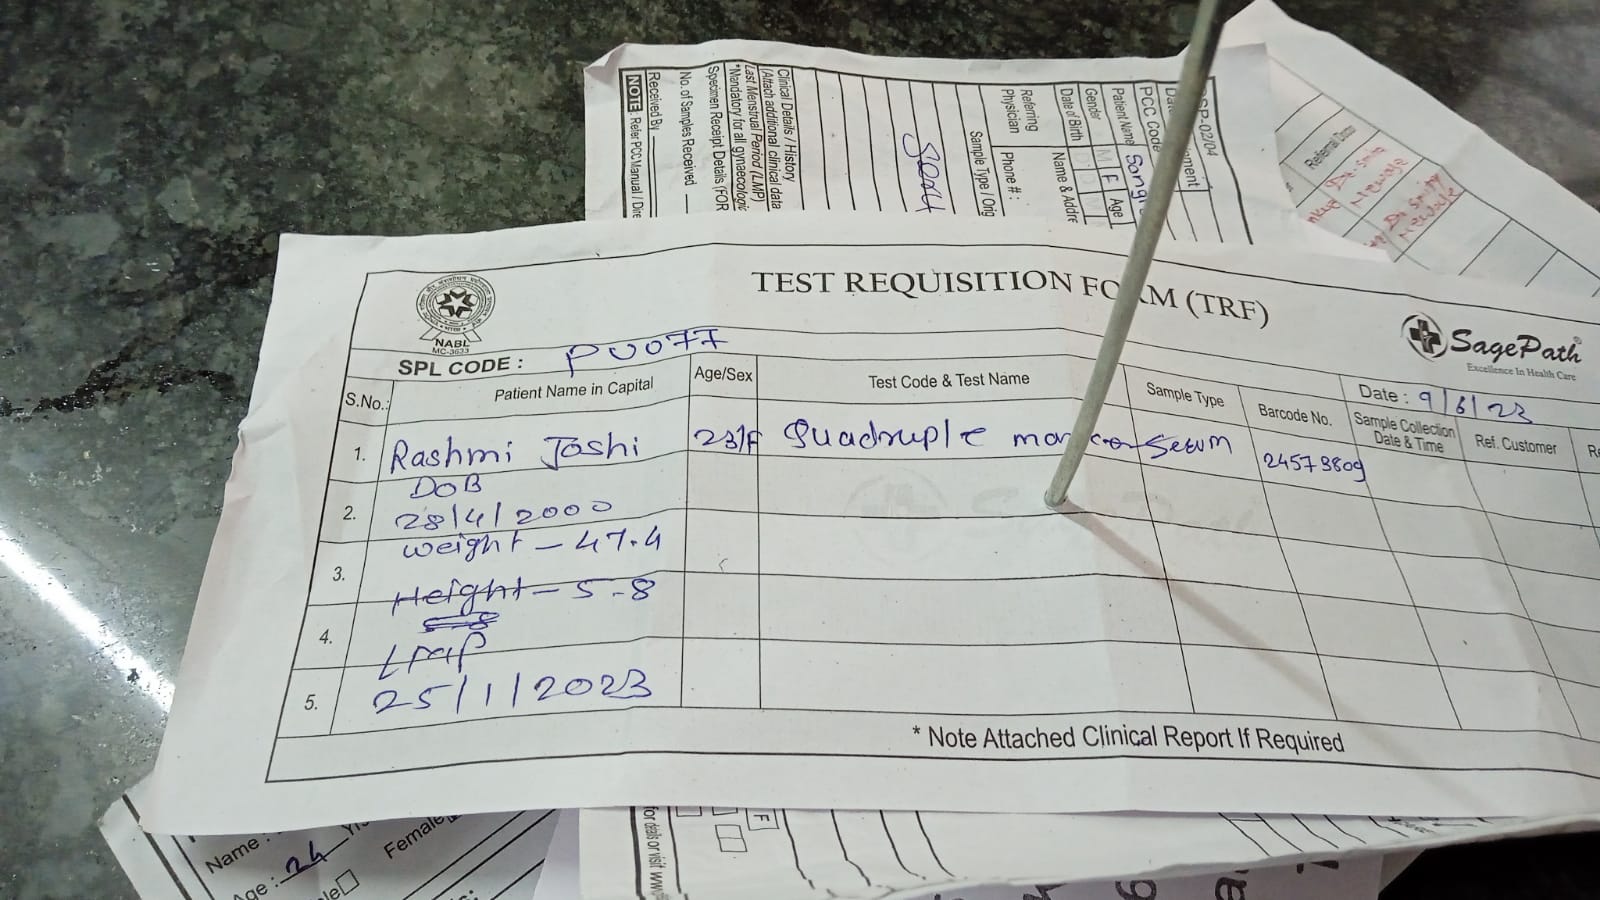 DSP-02/04
PCC Code
Patient Name Sangi
Gender M F Age
Date of Birth
Referring Physician
Name & Addre
Phone # :
Sample Type / Orig
Clinical Details / History
(Attach additional clinical data
Last Menstrual Period (LMP)
*Mandatory for all gynaecologic
Specimen Receipt Details (FOR
No. of Samples Received
Received By
NOTE: Refer PCC Manual / Dire
Referral Doctor
TEST REQUISITION FORM (TRF)
NABL
MC-3633
SagePath
Excellence In Health Care
SPL CODE : PU077
Date : 9/6/23
S.No.: Patient Name in Capital Age/Sex Test Code & Test Name Sample Type Barcode No. Sample Collection Date & Time Ref. Customer
1. Rashmi Joshi 23/F Quadruple Serum 24573809
DOB
2. 28/4/2000
weight - 47.4
3.
Height - 5.8
4.
LMP
5. 25/1/2023
* Note Attached Clinical Report If Required
Name :
Age : 24
Female